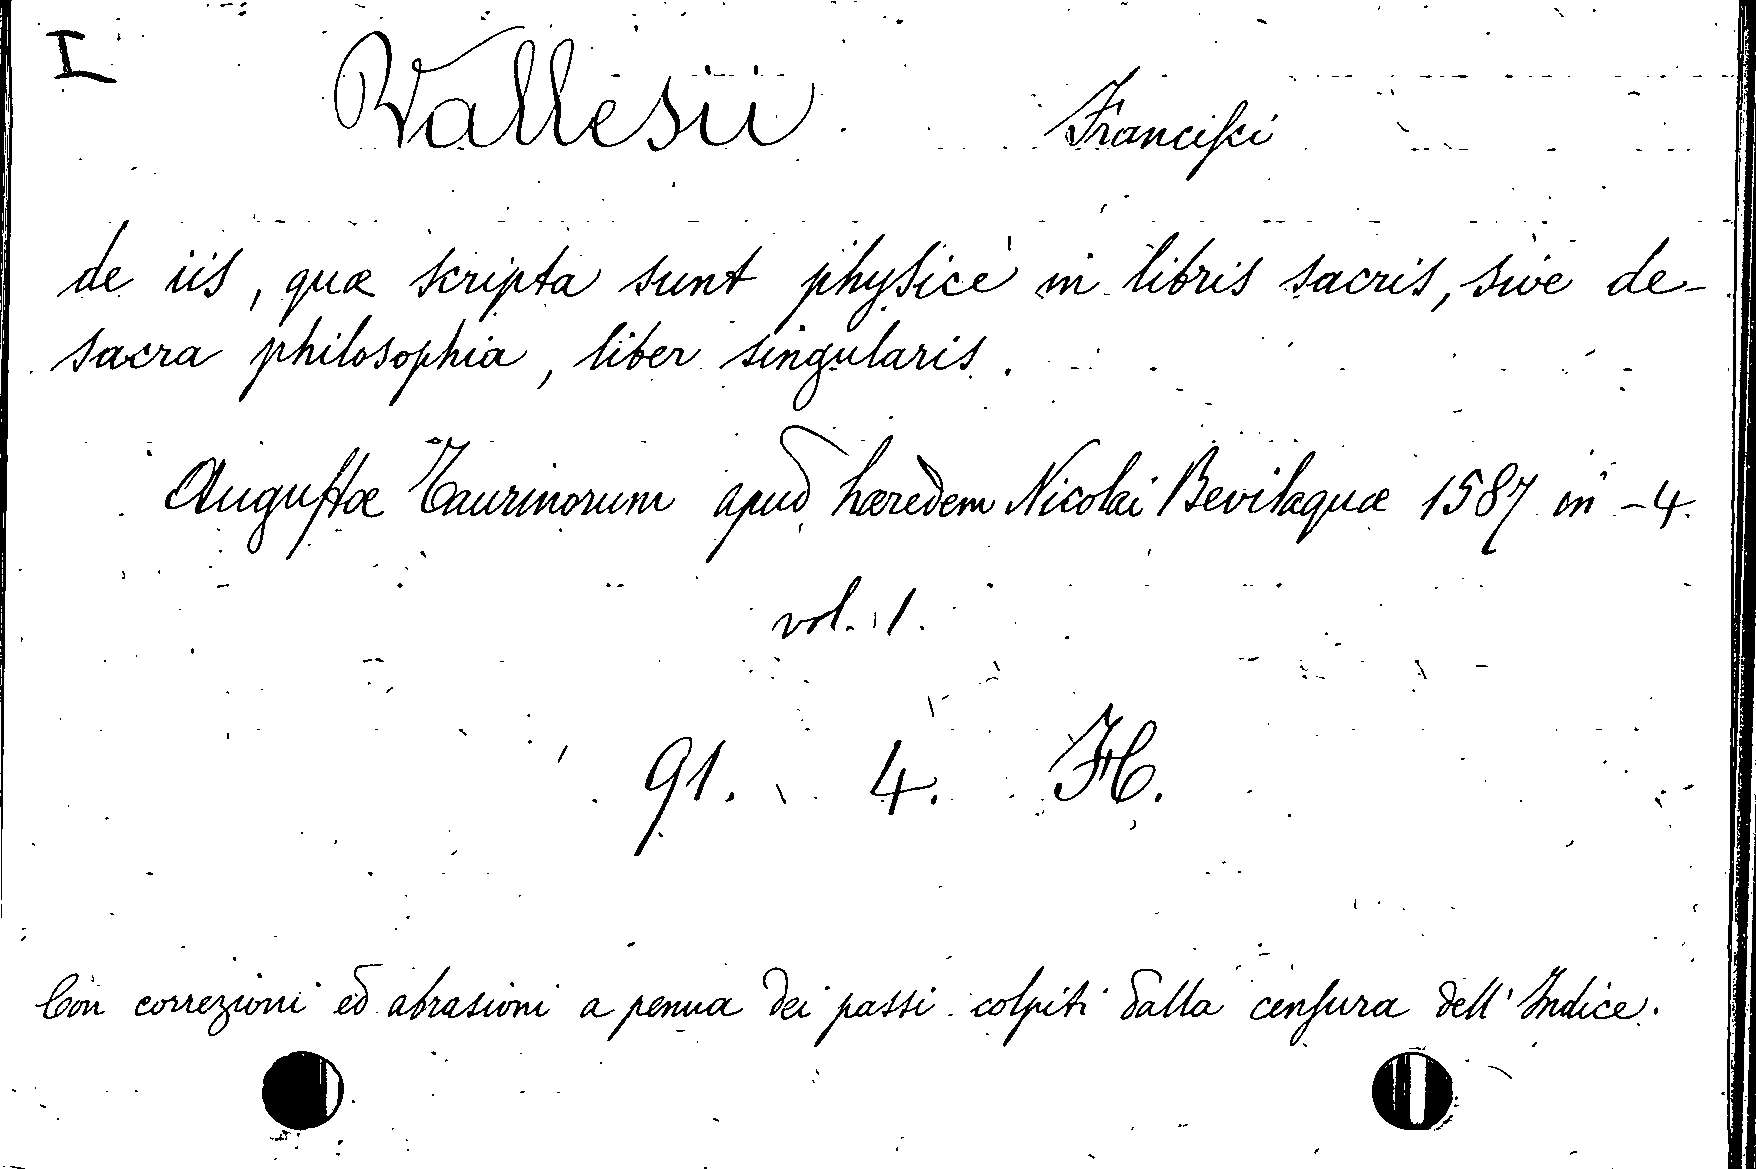 I
Vallesii Franciſci
de iis, quæ scripta sunt physicè in libris sacris, sive de
sacra philosophia, liber singularis.
Auguſtæ Taurinorum apud hæredem Nicolai Bevilaquæ 1587 in-4.
vol. 1.
91. 4. H.
Con correzioni ed abrasioni a penna dei passi colpiti dalla cenſura dell'Indice.